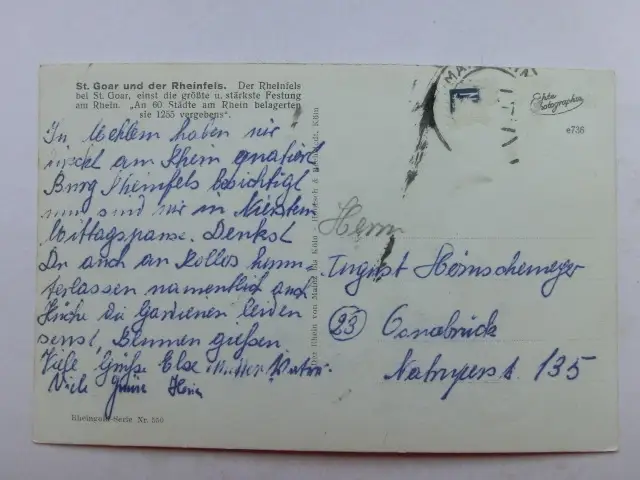 St. Goar und der Rheinfels. Der Rheinfels
bei St. Goar, einst die größte u. stärkste Festung
am Rhein. „An 60 Städte am Rhein belagerten
sie 1255 vergebens".
In Mehlem haben wir
direkt am Rhein
Burg Rheinfels besichtigt
nun sind wir in Nierstein
Mittagspause. Denkst
Du auch an Rollos herun-
terlassen namentlich auch
Küche die Gardienen leiden
sonst, Blumen gießen
Viele Grüße Else Mutter Vater.
Viele Grüsse
Rheingold-Serie Nr. 550
Der Rhein von Mainz bis Köln
Echte Photographie
e736
Herrn
August Heinschemeyer
23 Osnabrück
135